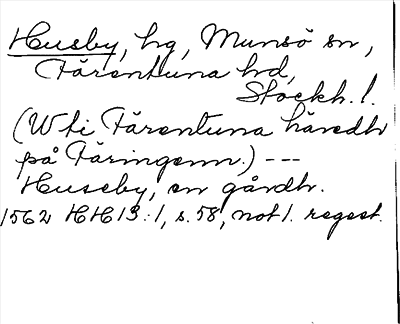 Husby, hg, Munsö sn,
Färentuna hd,
Stockh. l.
(W ti Färentuna häredh
på Färingönn.) ---
Huseby, en gårdh.
1562 HH 13:1, s. 58, not 1. regest.